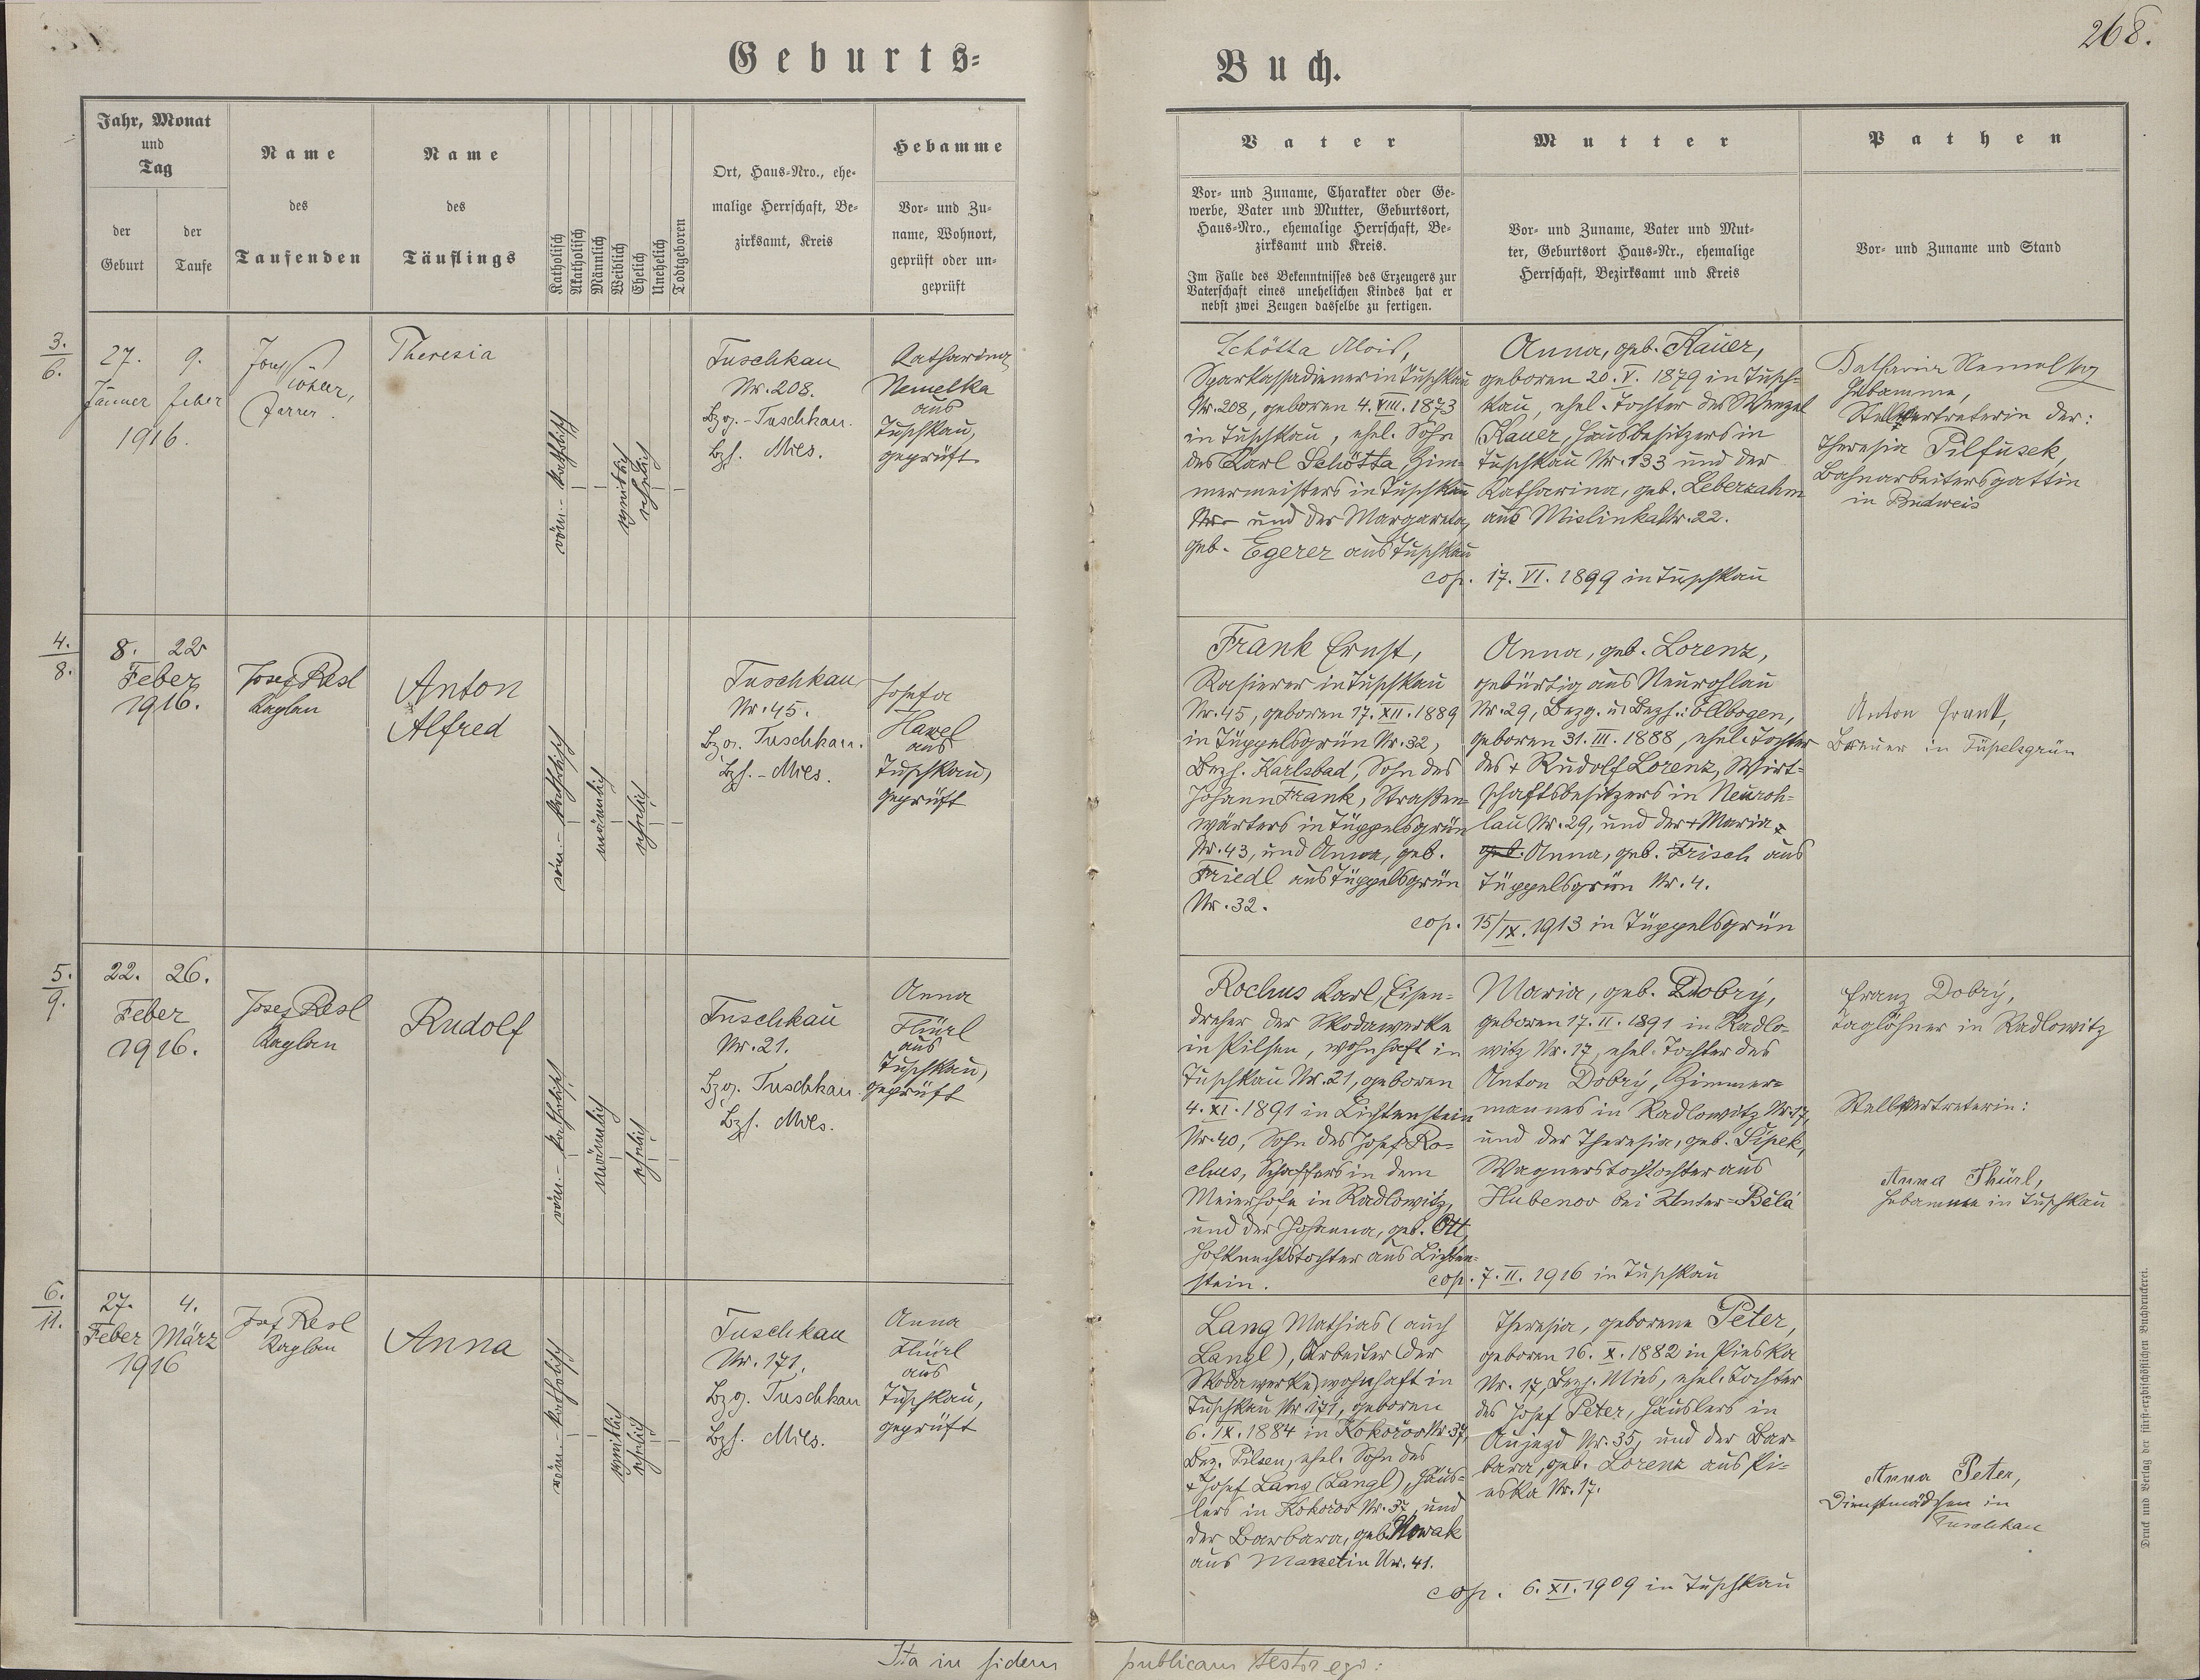 268.
Geburts-
Buch.
Jahr, Monat
und
Tag
der
Geburt
der
Taufe
Name
des
Taufenden
Name
des
Täuflings
Katholisch
Akatholisch
Männlich
Weiblich
Ehelich
Unehelich
Todtgeboren
Ort, Haus-Nro., ehe-
malige Herrschaft, Be-
zirksamt, Kreis
Hebamme
Vor- und Zu-
name, Wohnort,
geprüft oder un-
geprüft
Vater
Vor- und Zuname, Charakter oder Ge-
werbe, Vater und Mutter, Geburtsort,
Haus-Nro., ehemalige Herrschaft, Be-
zirksamt und Kreis.
Im Falle des Bekenntnisses des Erzeugers zur
Vaterschaft eines unehelichen Kindes hat er
nebst zwei Zeugen dasselbe zu fertigen.
Mutter
Vor- und Zuname, Vater und Mut-
ter, Geburtsort Haus-Nr., ehemalige
Herrschaft, Bezirksamt und Kreis
Pathen
Vor- und Zuname und Stand
3.
6.
27. 9.
Jänner feber
1916.
Josef
Theresia
röm.- katholisch
weiblich
ehelich
Tuschkau
Nr. 208.
Bzg.- Tuschkau.
Bzh. Mies.
Katharina
Nemelka
aus
Tuschkau,
geprüft.
Schötta Alois,
Sparkassadiener in Tuschkau
Nr. 208, geboren 4. VIII. 1873
in Tuschkau, ehel. Sohn
des Karl Schötta, Zim-
mermeisters in Tuschkau
Nr. und der Margareta,
geb. Egerer aus Tuschkau
Anna, geb. Kauer,
geboren 20. V. 1879 in Tusch-
kau, ehel. Tochter des Wenzel
Kauer, Hausbesitzers in
Tuschkau Nr. 133 und der
Katharina, geb. Leberzahm
aus Mislinka Nr. 22.
cop. 17. VI. 1899 in Tuschkau
Katharina Nemelka
Hebamme,
Stellvertreterin der:
Theresia Pilfusek,
Bahnarbeitersgattin
in Budweis
4.
8.
8. 22
Feber
1916.
Josef Resl
Kaplan
Anton
Alfred
röm.- katholisch
männlich
ehelich
Tuschkau
Nr. 45.
Bzg. Tuschkau.
Bzh.- Mies.
Josefa
Hawel
aus
Tuschkau,
geprüft
Frank Ernst,
Rasierer in Tuschkau
Nr. 45, geboren 17. XII. 1889
in Tüppelsgrün Nr. 32,
Bezh. Karlsbad, Sohn des
Johann Frank, Straßen-
wärters in Tüppelsgrün
Nr. 43, und Anna, geb.
Friedl aus Tüppelsgrün
Nr. 32.
Anna, geb. Lorenz,
gebürtig aus Neurohlau
Nr. 29, Bezg. u. Bezh.: Ellbogen,
geboren 31. III. 1888, ehel. Tochter
des + Rudolf Lorenz, Wirt-
schaftsbesitzers in Neuroh-
lau Nr. 29, und der + Maria
geb. Anna, geb. Frisch aus
Tüppelsgrün Nr. 4.
cop. 15/IX. 1913 in Tüppelsgrün
Anton Frank,
Brauer in Tüpelsgrün
5.
9.
22. 26.
Feber
1916.
Josef Resl
Kaplan
Rudolf
röm.- katholisch
männlich
ehelich
Tuschkau
Nr. 21.
Bzg. Tuschkau.
Bzh. Mies.
Anna
Thürl
aus
Tuschkau,
geprüft
Rochus Karl, Eisen-
dreher der Skodawerke
in Pilsen, wohnhaft in
Tuschkau Nr. 21, geboren
4. XI. 1891 in Lichtenstein
Nr. 40, Sohn des Josef Ro-
chus, Schaffers in dem
Meierhofe in Radlowitz,
und der Johanna, geb. Ott,
Hofknechtstochter aus Lichten-
stein.
Maria, geb. Dobrý,
geboren 17. II. 1891 in Radlo-
witz Nr. 17, ehel. Tochter des
Anton Dobrý, Zimmer-
mannes in Radlowitz Nr. 17,
und der Theresia, geb. Šípek,
Wagnerstochter aus
Hubenov bei Unter-Bělá
cop. 7. II. 1916 in Tuschkau
Franz Dobrý,
Taglöhner in Radlowitz
Stellvertreterin:
Anna Thürl,
Hebamme in Tuschkau
6.
11.
27. 4.
Feber März
1916
Josef Resl
Kaplan
Anna
röm.- katholisch
weiblich
ehelich
Tuschkau
Nr. 171.
Bzg. Tuschkau
Bzh. Mies.
Anna
Thürl
aus
Tuschkau,
geprüft
Lang Mathias (auch
Langl), Arbeiter (der
Skodawerke) wohnhaft in
Tuschkau Nr. 171, geboren
6. IX. 1884 in Kokořov Nr. 37,
Bez. Pilsen, ehel. Sohn des
+ Josef Lang (Langl), Häus-
lers in Kokořov Nr. 37, und
der Barbara, geb. Nowak
aus Manetin Nr. 41.
Theresia, geborene Peter,
geboren 16. X. 1882 in Pieska
Nr. 17, Bezh. Mies, ehel. Tochter
des Josef Peter, Häuslers in
Aujezd Nr. 35, und der Bar-
bara, geb. Lorenz aus Pi-
eska Nr. 17.
cop. 6. XI. 1909 in Tuschkau
Anna Peter,
Dienstmädchen in
Tuschkau
Ita in fidem publicam testor ego:
Druck und Verlag der fürst-erzbischöflichen Buchdruckerei.